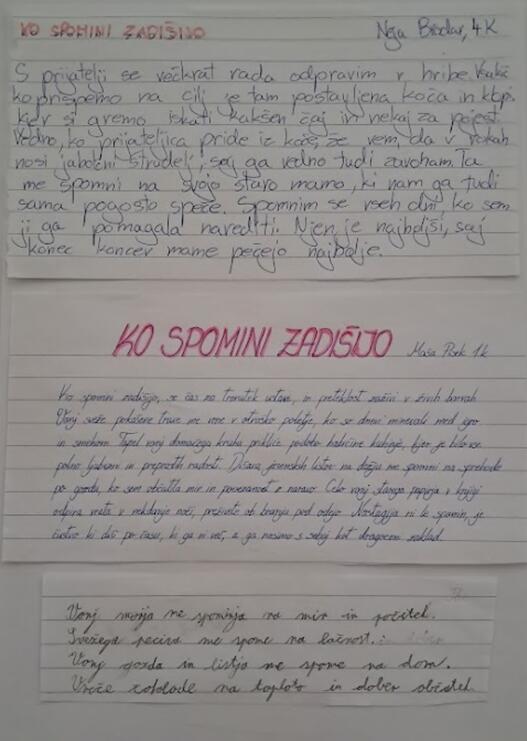 KO SPOMINI ZADIŠIJO
Neja 4.K
S prijatelji se večkrat rada odpravim v hribe.
ko prispemo na cilj je tam postavljena koča in
si gremo iskati kakšen čaj in nekaj za pojest.
Vedno, ko prijateljica pride iz koče, že vem, da v rokah
nosi jabolčni štrudelj, saj ga vedno tudi zavoham. Ta
me spomni na svojo staro mamo, ki nam ga tudi
sama pogosto speče. Spomnim se vseh dni, ko sem
ji ga pomagala narediti. Njen je najboljši, saj
konec koncev mame pečejo najbolje.
KO SPOMINI ZADIŠIJO
Maša 1.k
Ko spomini zadišijo, se čas za trenutek ustavi, in preteklost zaživi v živih barvah.
Vonj sveže pokošene trave me vrne v otroško poletje, ko so dnevi minevali med igro
in smehom. Topel vonj domačega kruha prikliče podobo babičine kuhinje, kjer je bilo vse
polno ljubezni in preprostih radosti. Dišava jesenskih listov na dežju me spomni na sprehode
po gozdu, ko sem občutila mir in povezanost z naravo. Celo vonj starega papirja v knjigi
odpira vrata v nekdanje noči, preživete ob branju pod odejo. Nostalgija ni le spomin, je
čustvo ki diši po času, ki ga ni več, a ga nosimo s seboj kot dragocen zaklad.
Vonj morja me spominja na mir in počitek.
Svežega peciva me spomne na lačnost.
Vonj gozda in listja me spomne na dom.
Vroče čokolade na toploto in dober občutek.